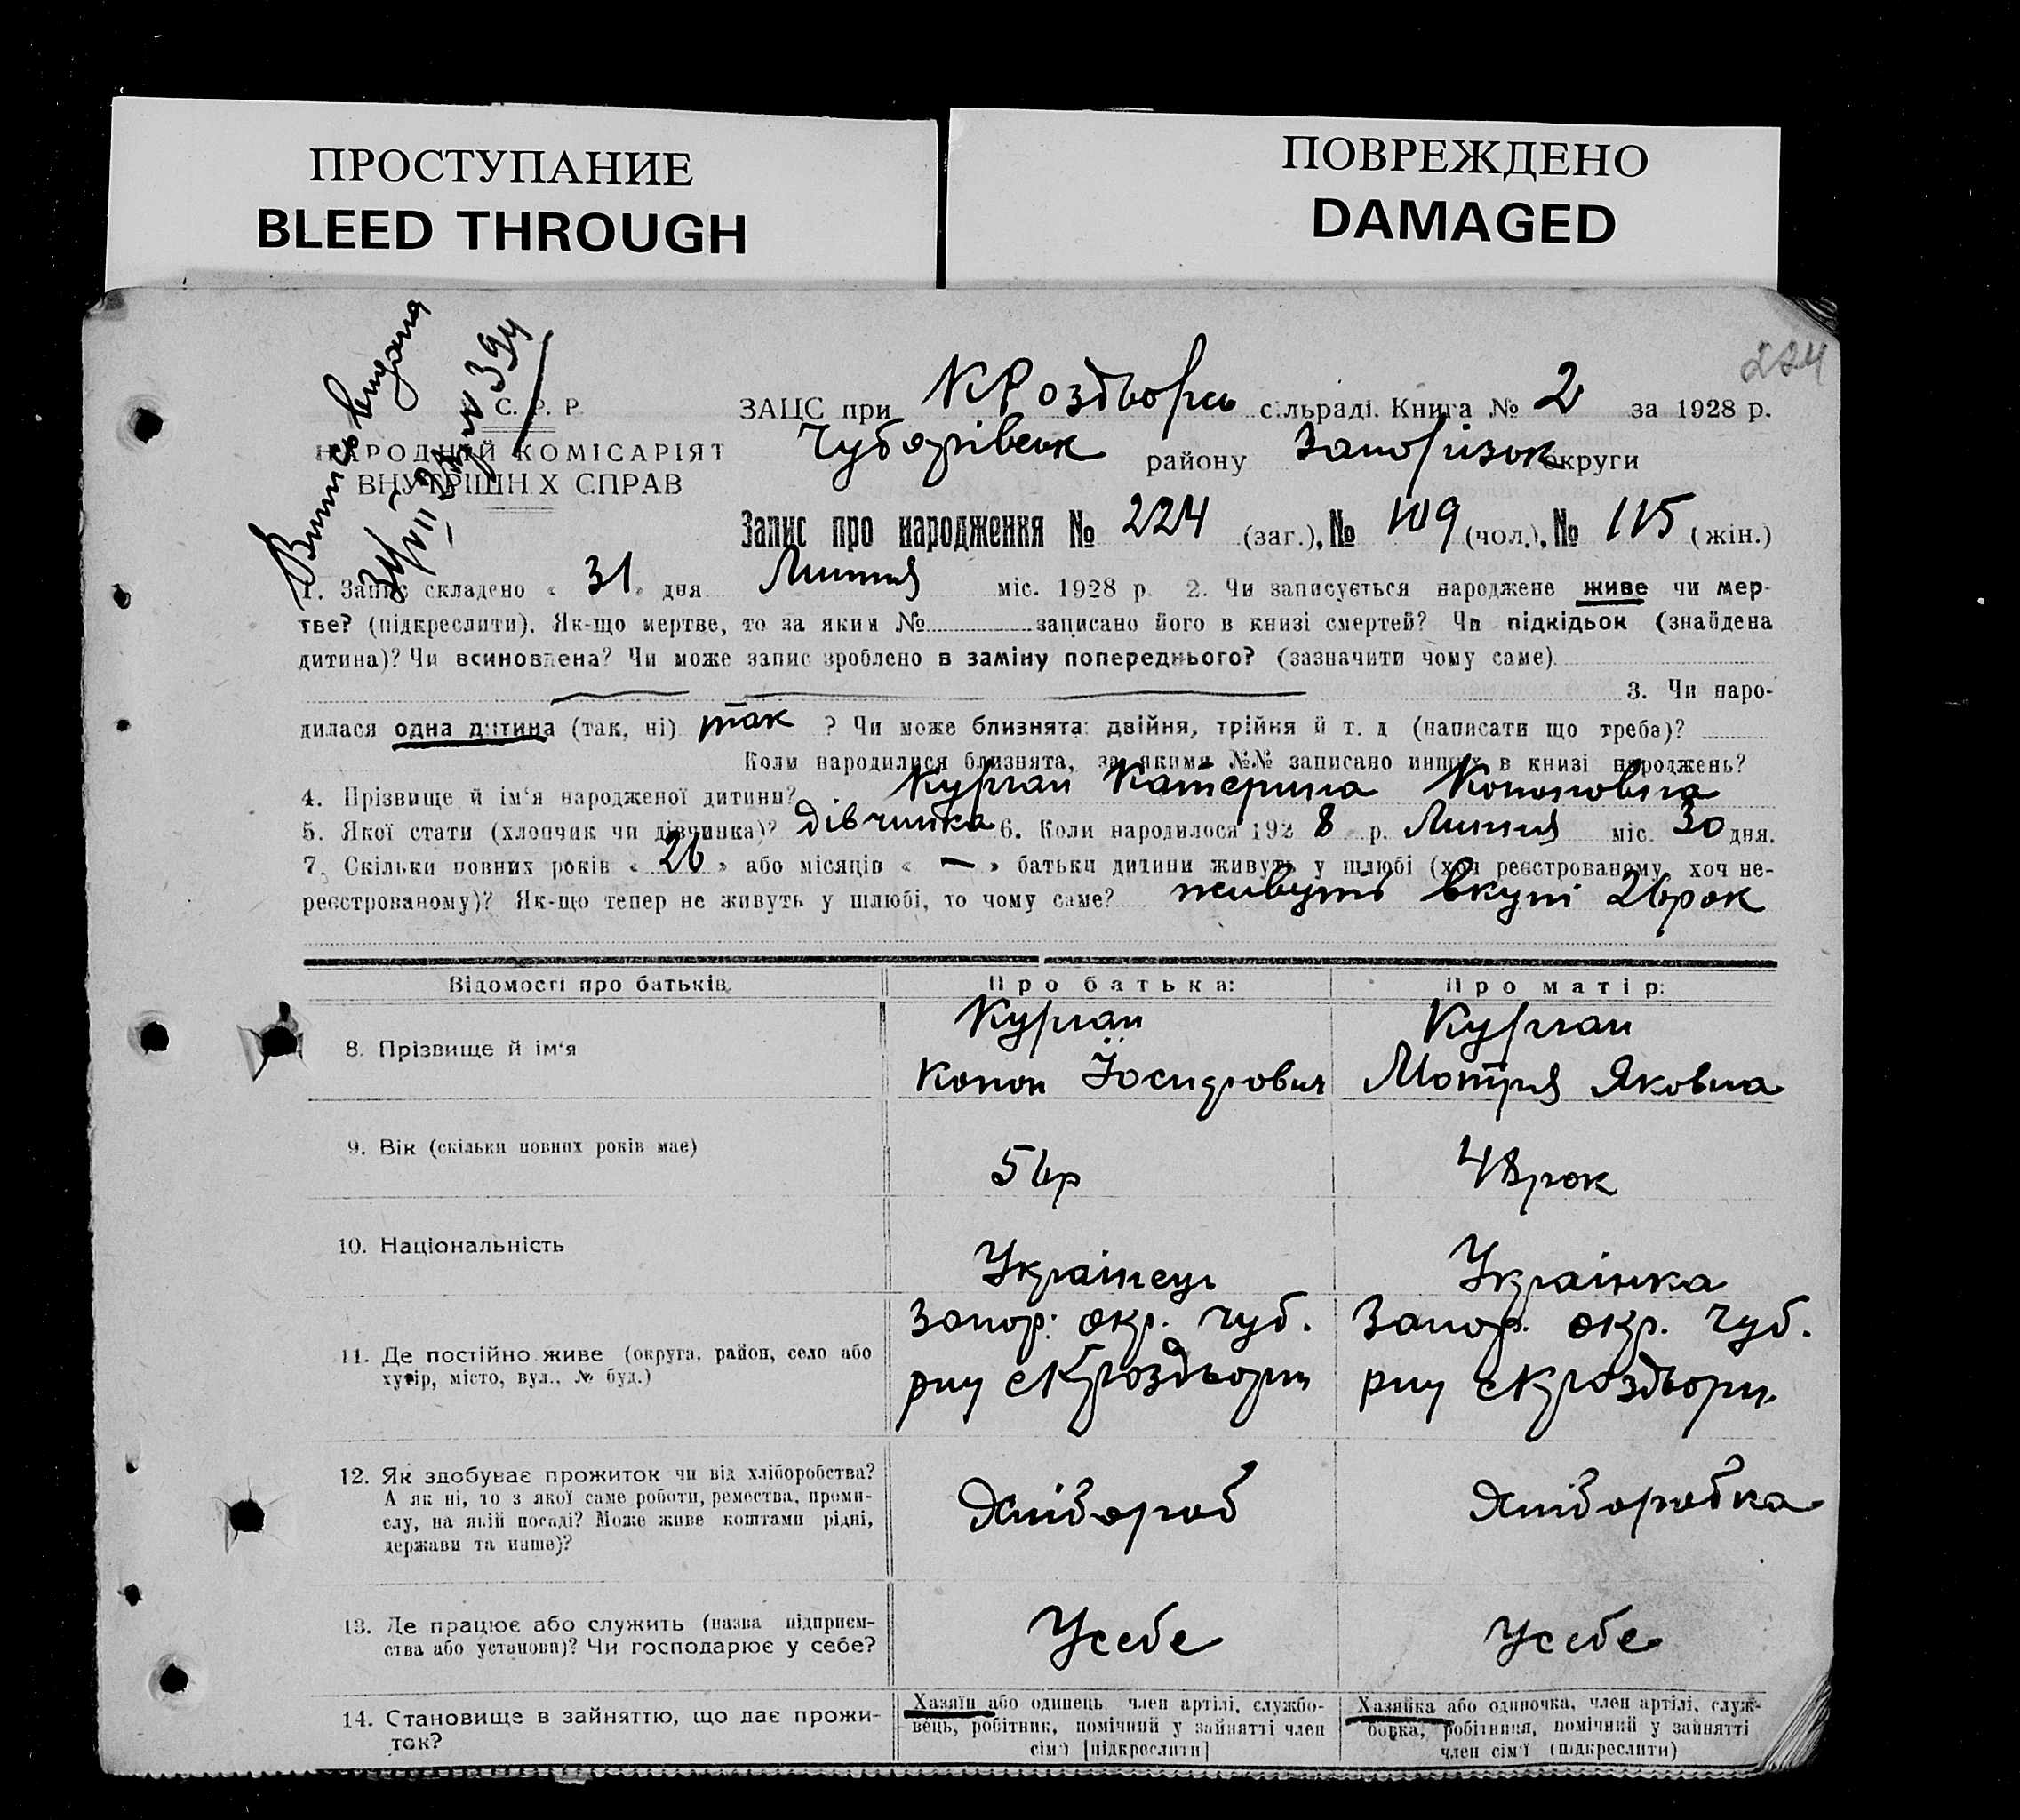 ПРОСТУПАНИЕ
BLEED THROUGH
ПОВРЕЖДЕНО
DAMAGED
224
Випись видана
31/VII 28 р. № 394
С. Р. Р.
НАРОДНИЙ КОМІСАРІЯТ
ВНУТРІШНІХ СПРАВ
ЗАЦС при КРоздорсь сільраді. Книга № 2 за 1928 р.
Чубарівськ району Запорізьк округи
Запис про народження № 224 (заг.), № 109 (чол.), № 115 (жін.)
1. Запис складено « 31 » дня Липня міс. 1928 р. 2. Чи записується народжене живе чи мер-
тве? (підкреслити). Як-що мертве, то за яким № записано його в книзі смертей? Чи підкідьок (знайдена
дитина)? Чи всиновлена? Чи може запис зроблено в заміну попереднього? (зазначити чому саме)
3. Чи наро-
дилася одна дитина (так, ні) так ? Чи може близнята: двійня, трійня й т. д (написати що треба)?
Коли народилися близнята, за якими №№ записано инших в книзі народжень?
4. Прізвище й ім'я народженої дитини? Курган Катерина Кононовна
5. Якої стати (хлопчик чи дівчинка)? дівчинка 6. Коли народилося 1928 р. Липня міс. 30 дня.
7. Скільки повних років « 26 » або місяців « — » батьки дитини живуть у шлюбі (хоч реєстрованому, хоч не-
реєстрованому)? Як-що тепер не живуть у шлюбі, то чому саме? живуть вкупі 26рок
Відомості про батьків Про батька: Про матір:
8. Прізвище й ім'я
Курган
Конон Йосипович
Курган
Мотря Яковна
9. Вік (скільки повних років має)
56р
48рок
10. Національність
Українець
Українка
11. Де постійно живе (округа, район, село або
хутір, місто, вул., № буд.)
Запор: окр. Чуб.
рну сКроздори
Запор. окр. Чуб.
рну сКроздори.
12. Як здобуває прожиток чи від хліборобства?
А як ні, то з якої саме роботи, ремества, проми-
слу, на якій посаді? Може живе коштами рідні,
держави та инше)?
Хлібороб
Хліборобка
13. Де працює або служить (назва підприєм-
ства або установи)? Чи господарює у себе?
Усебе
Усебе
14. Становище в зайняттю, що дає прожи-
ток?
Хазяїн або одинець, член артілі, службо-
вець, робітник, помічний у зайнятті член
сім'ї [підкреслити]
Хазяйка або одиночка, член артілі, служ-
бовка, робітниця, помічний у зайнятті
член сім'ї (підкреслити)